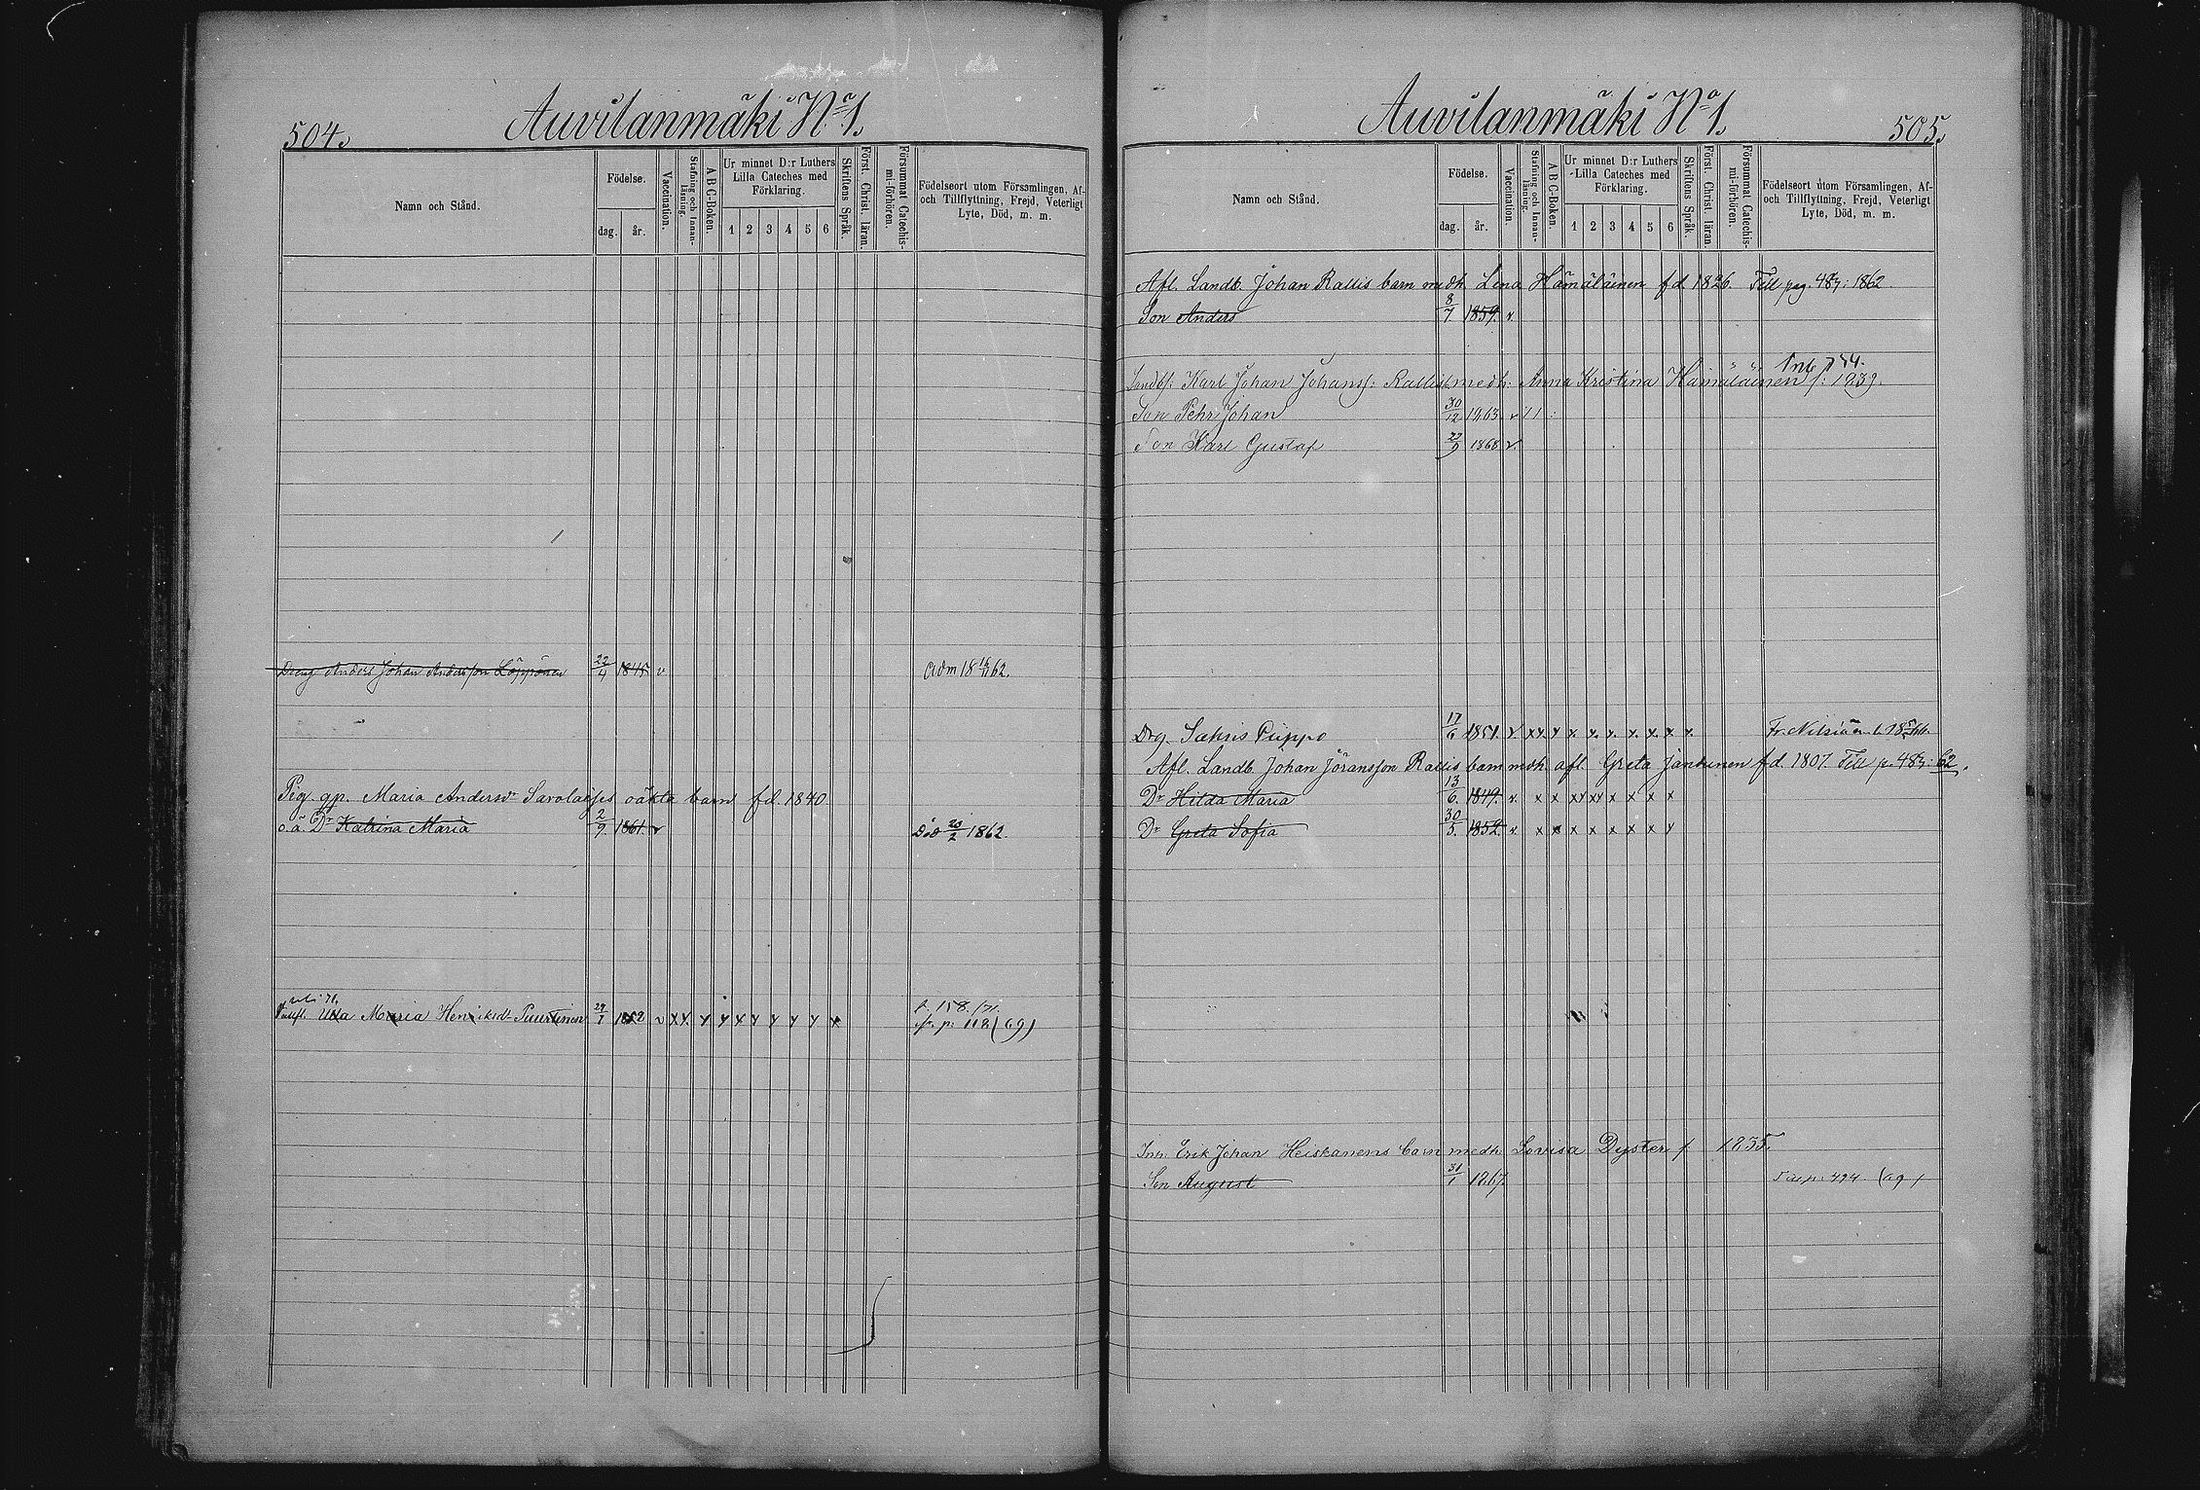 504.
Auvilanmäki No 1.
Namn och Stånd.
Födelse.
dag.
år.
Vaccination.
Stafning och Innan-
läsning.
A B C-Boken.
Ur minnet D:r Luthers
Lilla Cateches med
Förklaring.
1 2 3 4 5 6
Skriftens Språk.
Först. Christ. läran.
Försummat Catechis-
mi-förhören.
Födelseort utom Församlingen, Af-
och Tillflyttning, Frejd, Veterligt
Lyte, Död, m. m.
Dreng Anders Johan Andersson Löppönen 22/4 1845 v Adm 18 /11 62.
Pig. gp. Maria Andersdr Savolaises oäkta barn fd. 1840
o.ä. Dr Katrina Maria 2/9. 1861. v Död 23/2 1862.
71.
Ulla Maria Henriksdr Puurtinen 29/1 1852 v x x. x x x x x x x x p. 158. /71.
fr. p: 118 (69)
505.
Auvilanmäki No 1.
Namn och Stånd.
Födelse.
dag.
år.
Vaccination.
Stafning och Innan-
läsning.
A B C-Boken.
Ur minnet D:r Luthers
Lilla Cateches med
Förklaring.
1 2 3 4 5 6
Skriftens Språk.
Först. Christ. läran.
Försummat Catechis-
mi-förhören.
Födelseort utom Församlingen, Af-
och Tillflyttning, Frejd, Veterligt
Lyte, Död, m. m.
Afl. Landb. Johan Rallis barn medh. Lena Hämäläinen fd 1826. Till pag. 487: 1862
Son Anders 8/7 1859. v.
Karl Johan Johanss: Rallis medh: Anna Kristina Hämäläinen f: 1839.
Son Pehr Johan 30/12 1863. v / /
Son Karl Gustaf 27/9 1868 v.
Drg. Sakris Piippo 17/6 1851. v. x x. x x. x. x. x. x. x x. Fr. Nilsiä
Afl. Landb. Johan Jöransson Rallis barn medh. afl. Greta Jantunen fd. 1807. Till p. 487: 62.
Dr Hilda Maria 13/6. 1849. v. x x x x x x x x
Dr Greta Sofia 30/5. 1852. v. x x x x x x x x
Inh: Erik Johan Heiskanens barn medh. Lovisa Dyster f 1835.
Son August 31/1 1867. p: 494 (69)